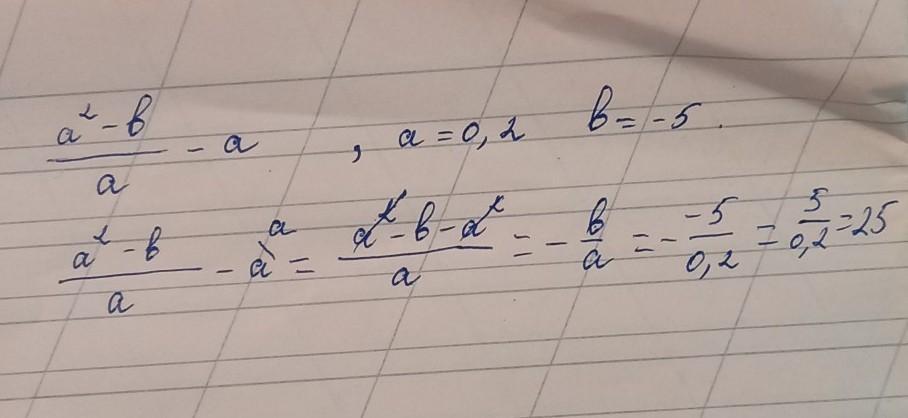 (a² - b)/a - a , a = 0,2 b = -5.
(a² - b)/a - a^{\a} = (a² - b - a²)/a = - b/a = - -5/0,2 = 5/0,2 = 25